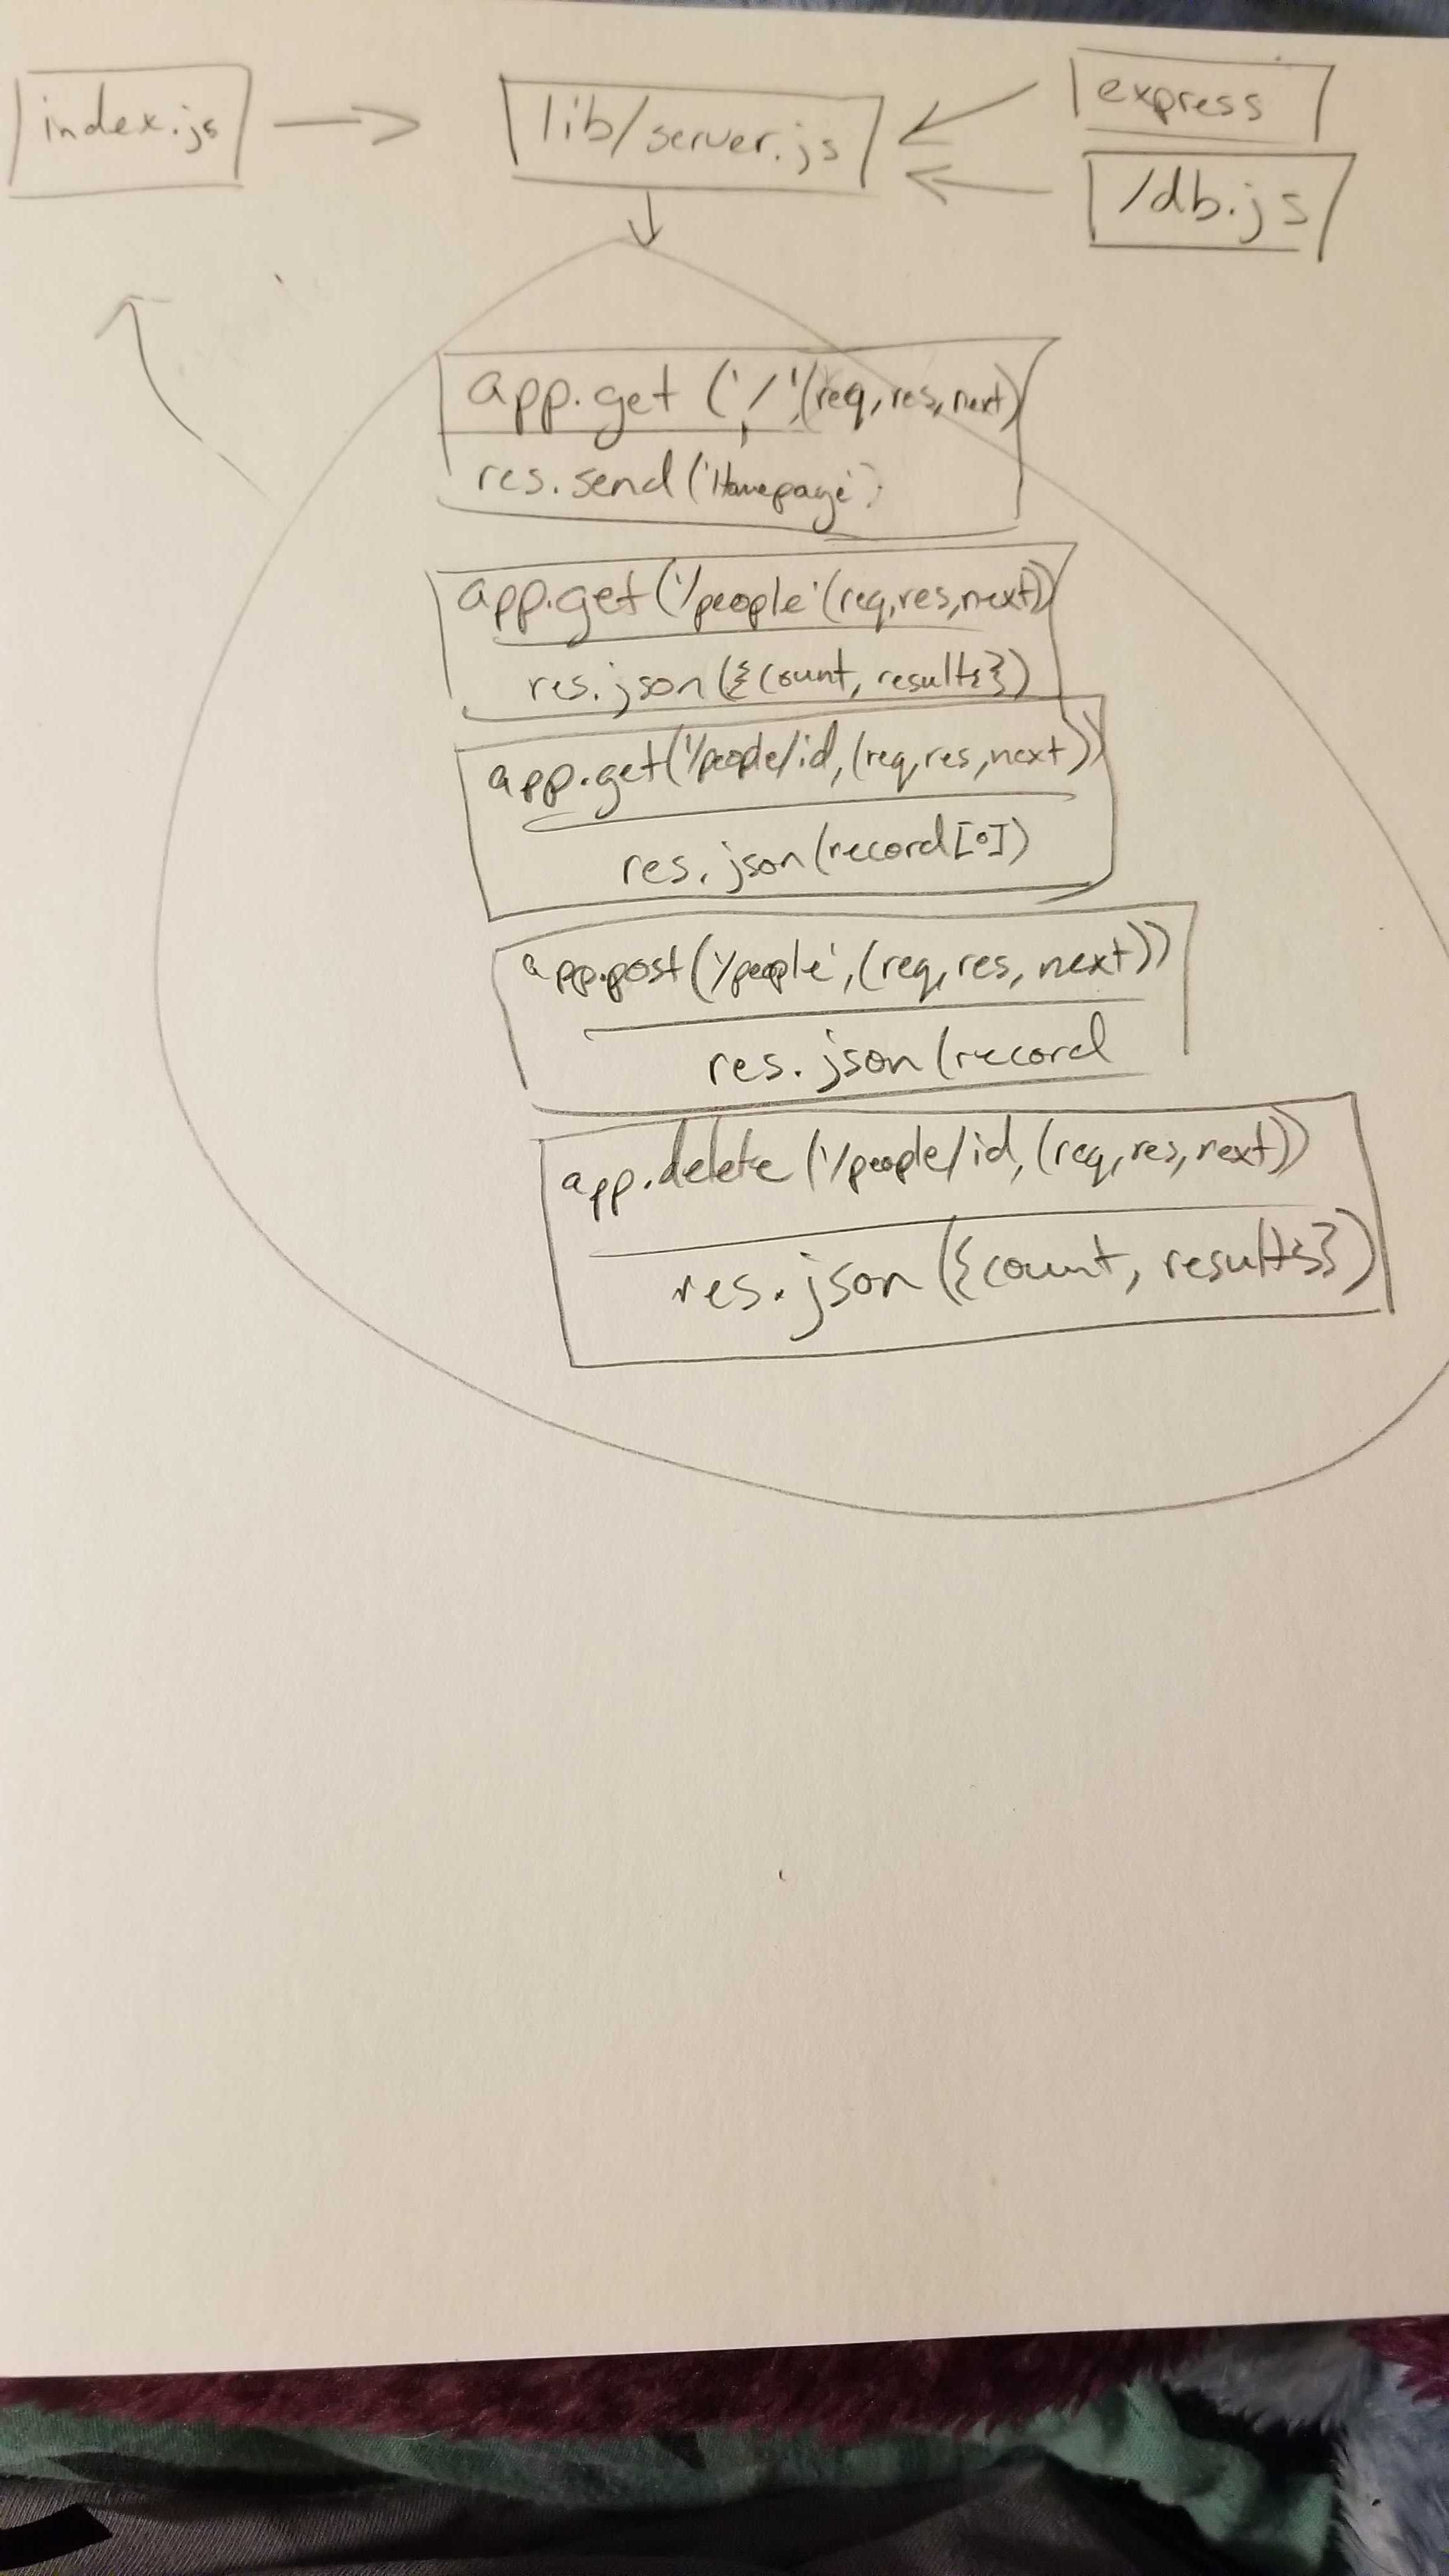 index.js
lib/server.js
express
/db.js
app.get ('/',(req,res,next)
res.send('Homepage');
app.get('/people'(req,res,next))
res.json({count, results})
app.get('/people/id,(req,res,next))
res.json(record[0])
app.post('/people',(req,res,next))
res.json(record
app.delete('/people/id,(req,res,next))
res.json({count, results})